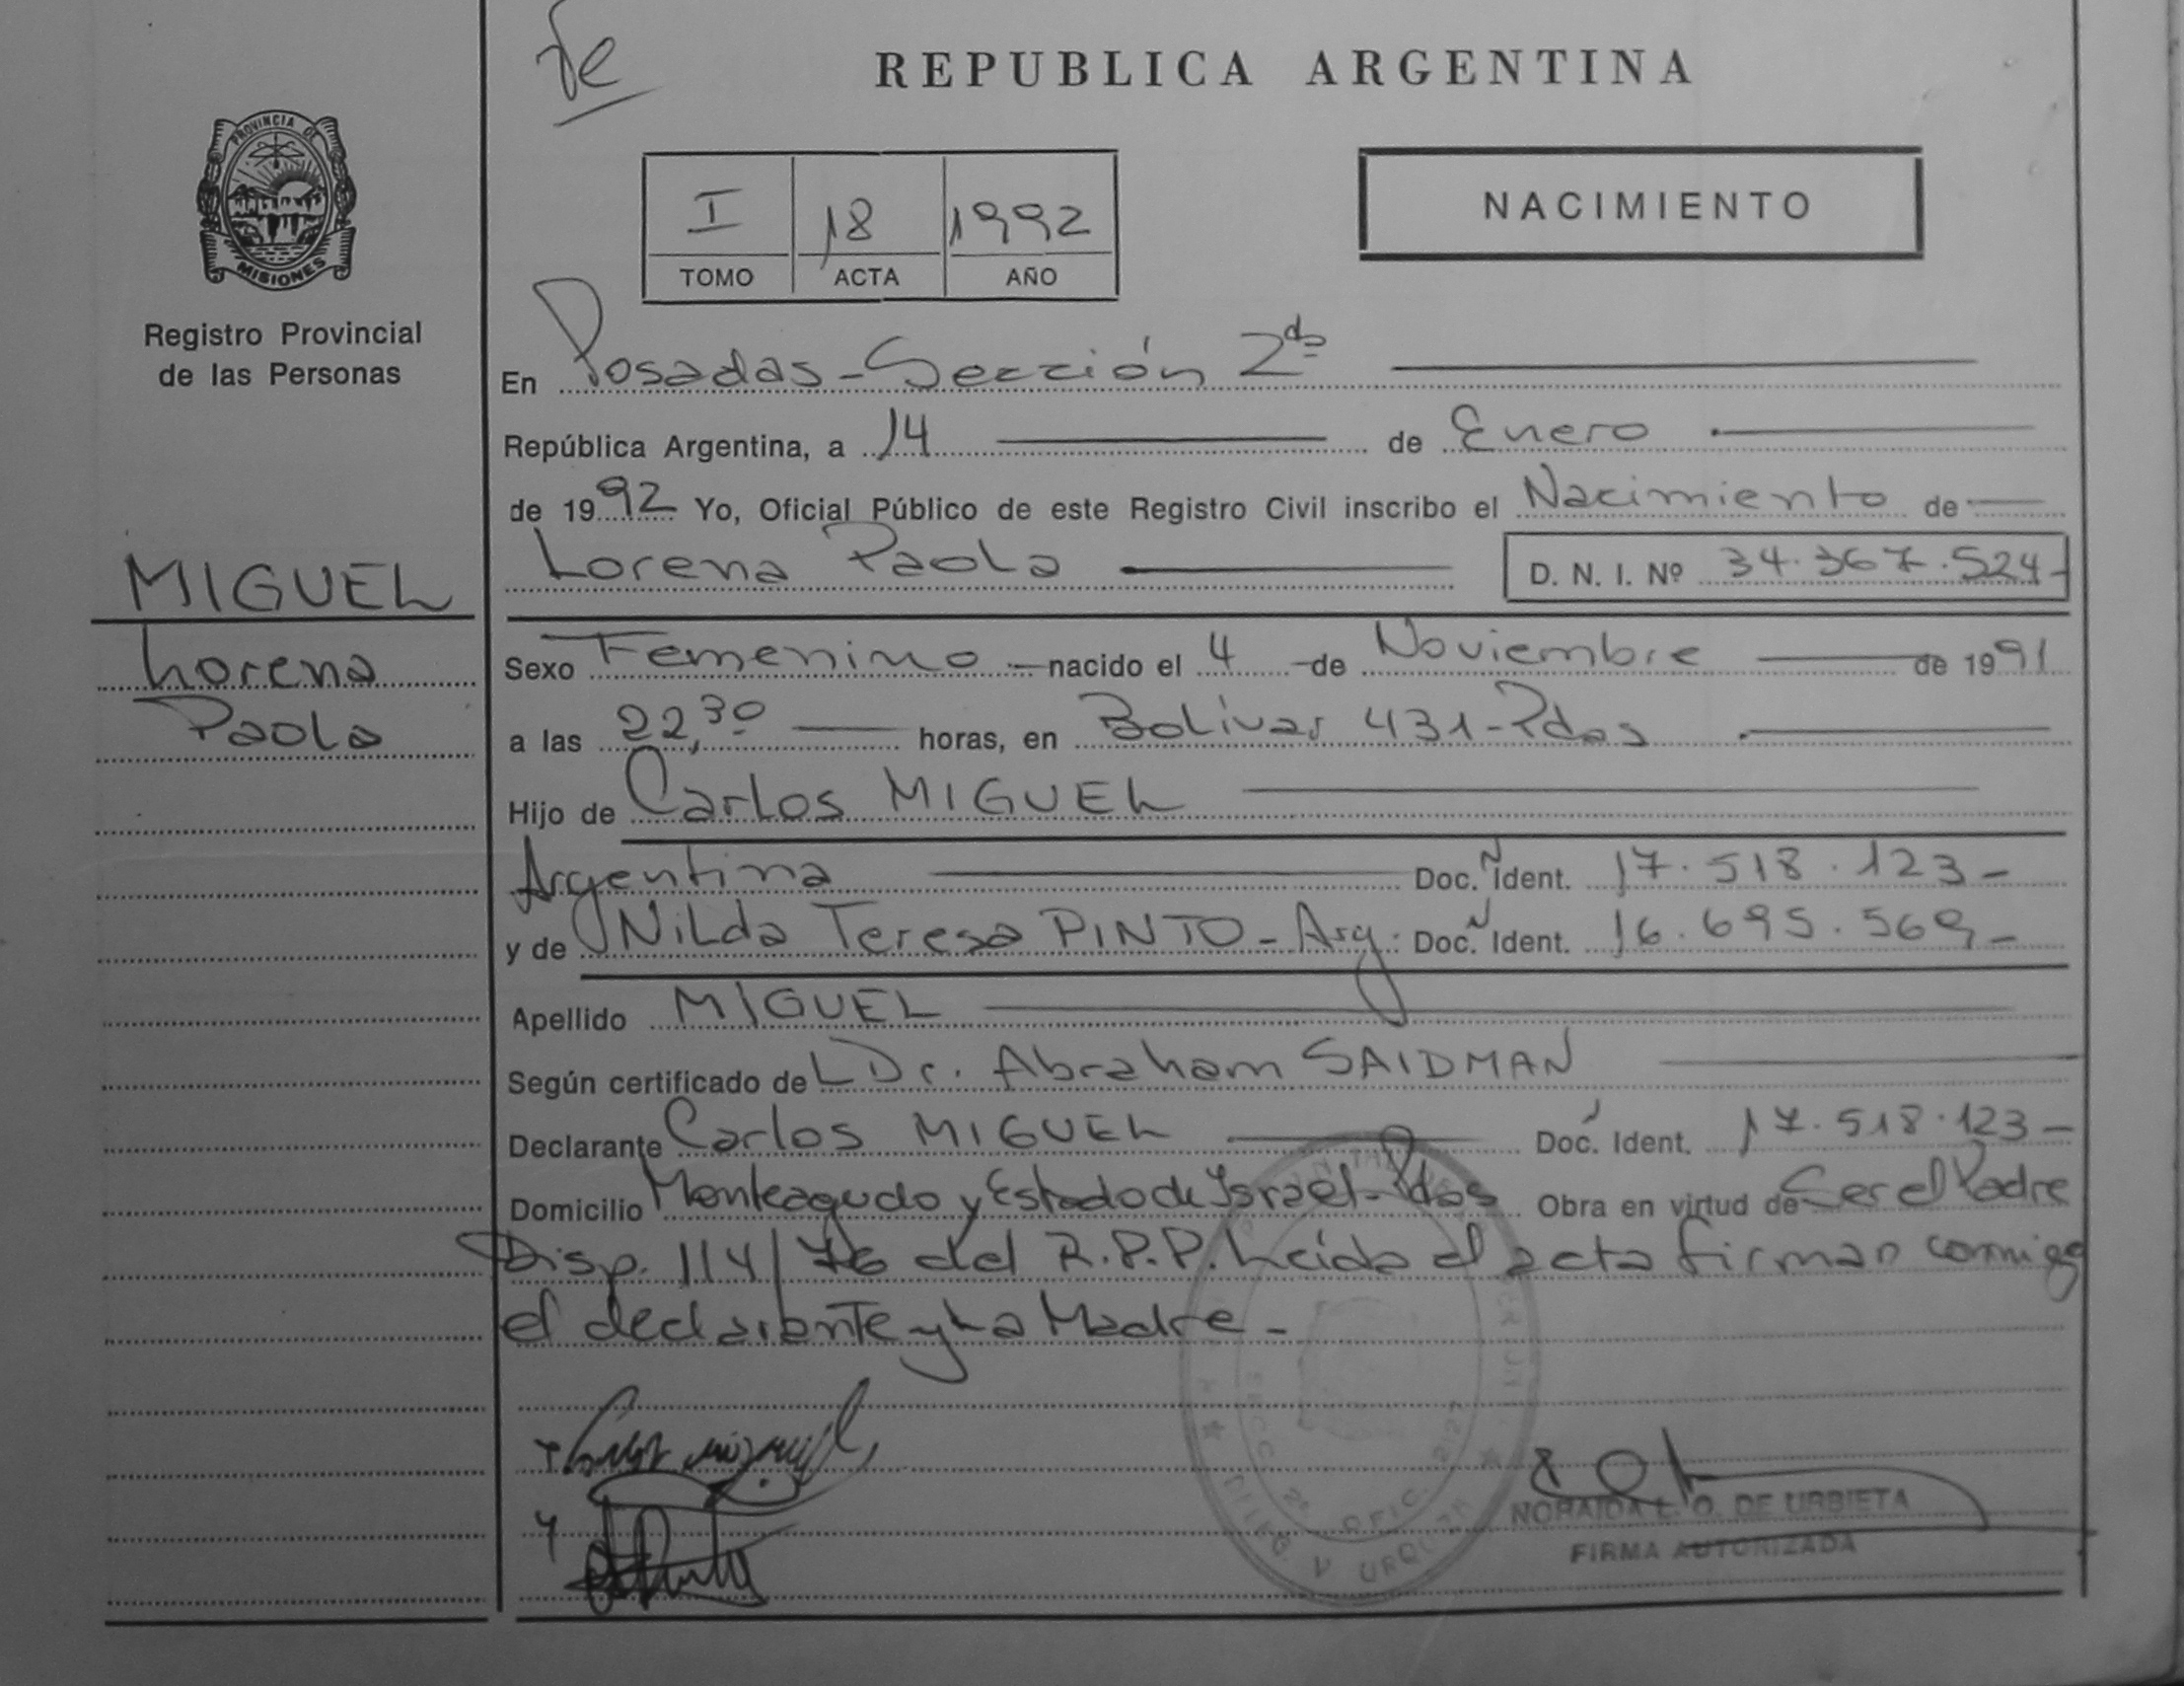 Fe
REPUBLICA ARGENTINA
PROVINCIA DE
MISIONES
Registro Provincial
de las Personas
I 18 1992
TOMO ACTA AÑO
NACIMIENTO
En Posadas-Sección 2da
República Argentina, a 14 de Enero
de 1992 Yo, Oficial Público de este Registro Civil inscribo el Nacimiento de
Lorena Paola D. N. I. Nº 34.367.524-
MIGUEL
Lorena
Paola
Sexo Femenino nacido el 4 de Noviembre de 1991
a las 22,30 horas, en Bolívar 431-Pdas
Hijo de Carlos MIGUEL
Argentina Doc. N Ident. 17.518.123-
y de Nilda Teresa PINTO-Arg. Doc. N Ident. 16.695.569-
Apellido MIGUEL
Según certificado del Dr. Abraham SAIDMAN
Declarante Carlos MIGUEL Doc. Ident. 17.518.123-
Domicilio Monteagudo y Estado de Israel-Pdas Obra en virtud de Ser el Padre
Disp. 114/76 del R.P.P. Leída el acta firman conmigo
el declarante y La Madre-
NORAIDA L. O. DE URBIETA
FIRMA AUTORIZADA